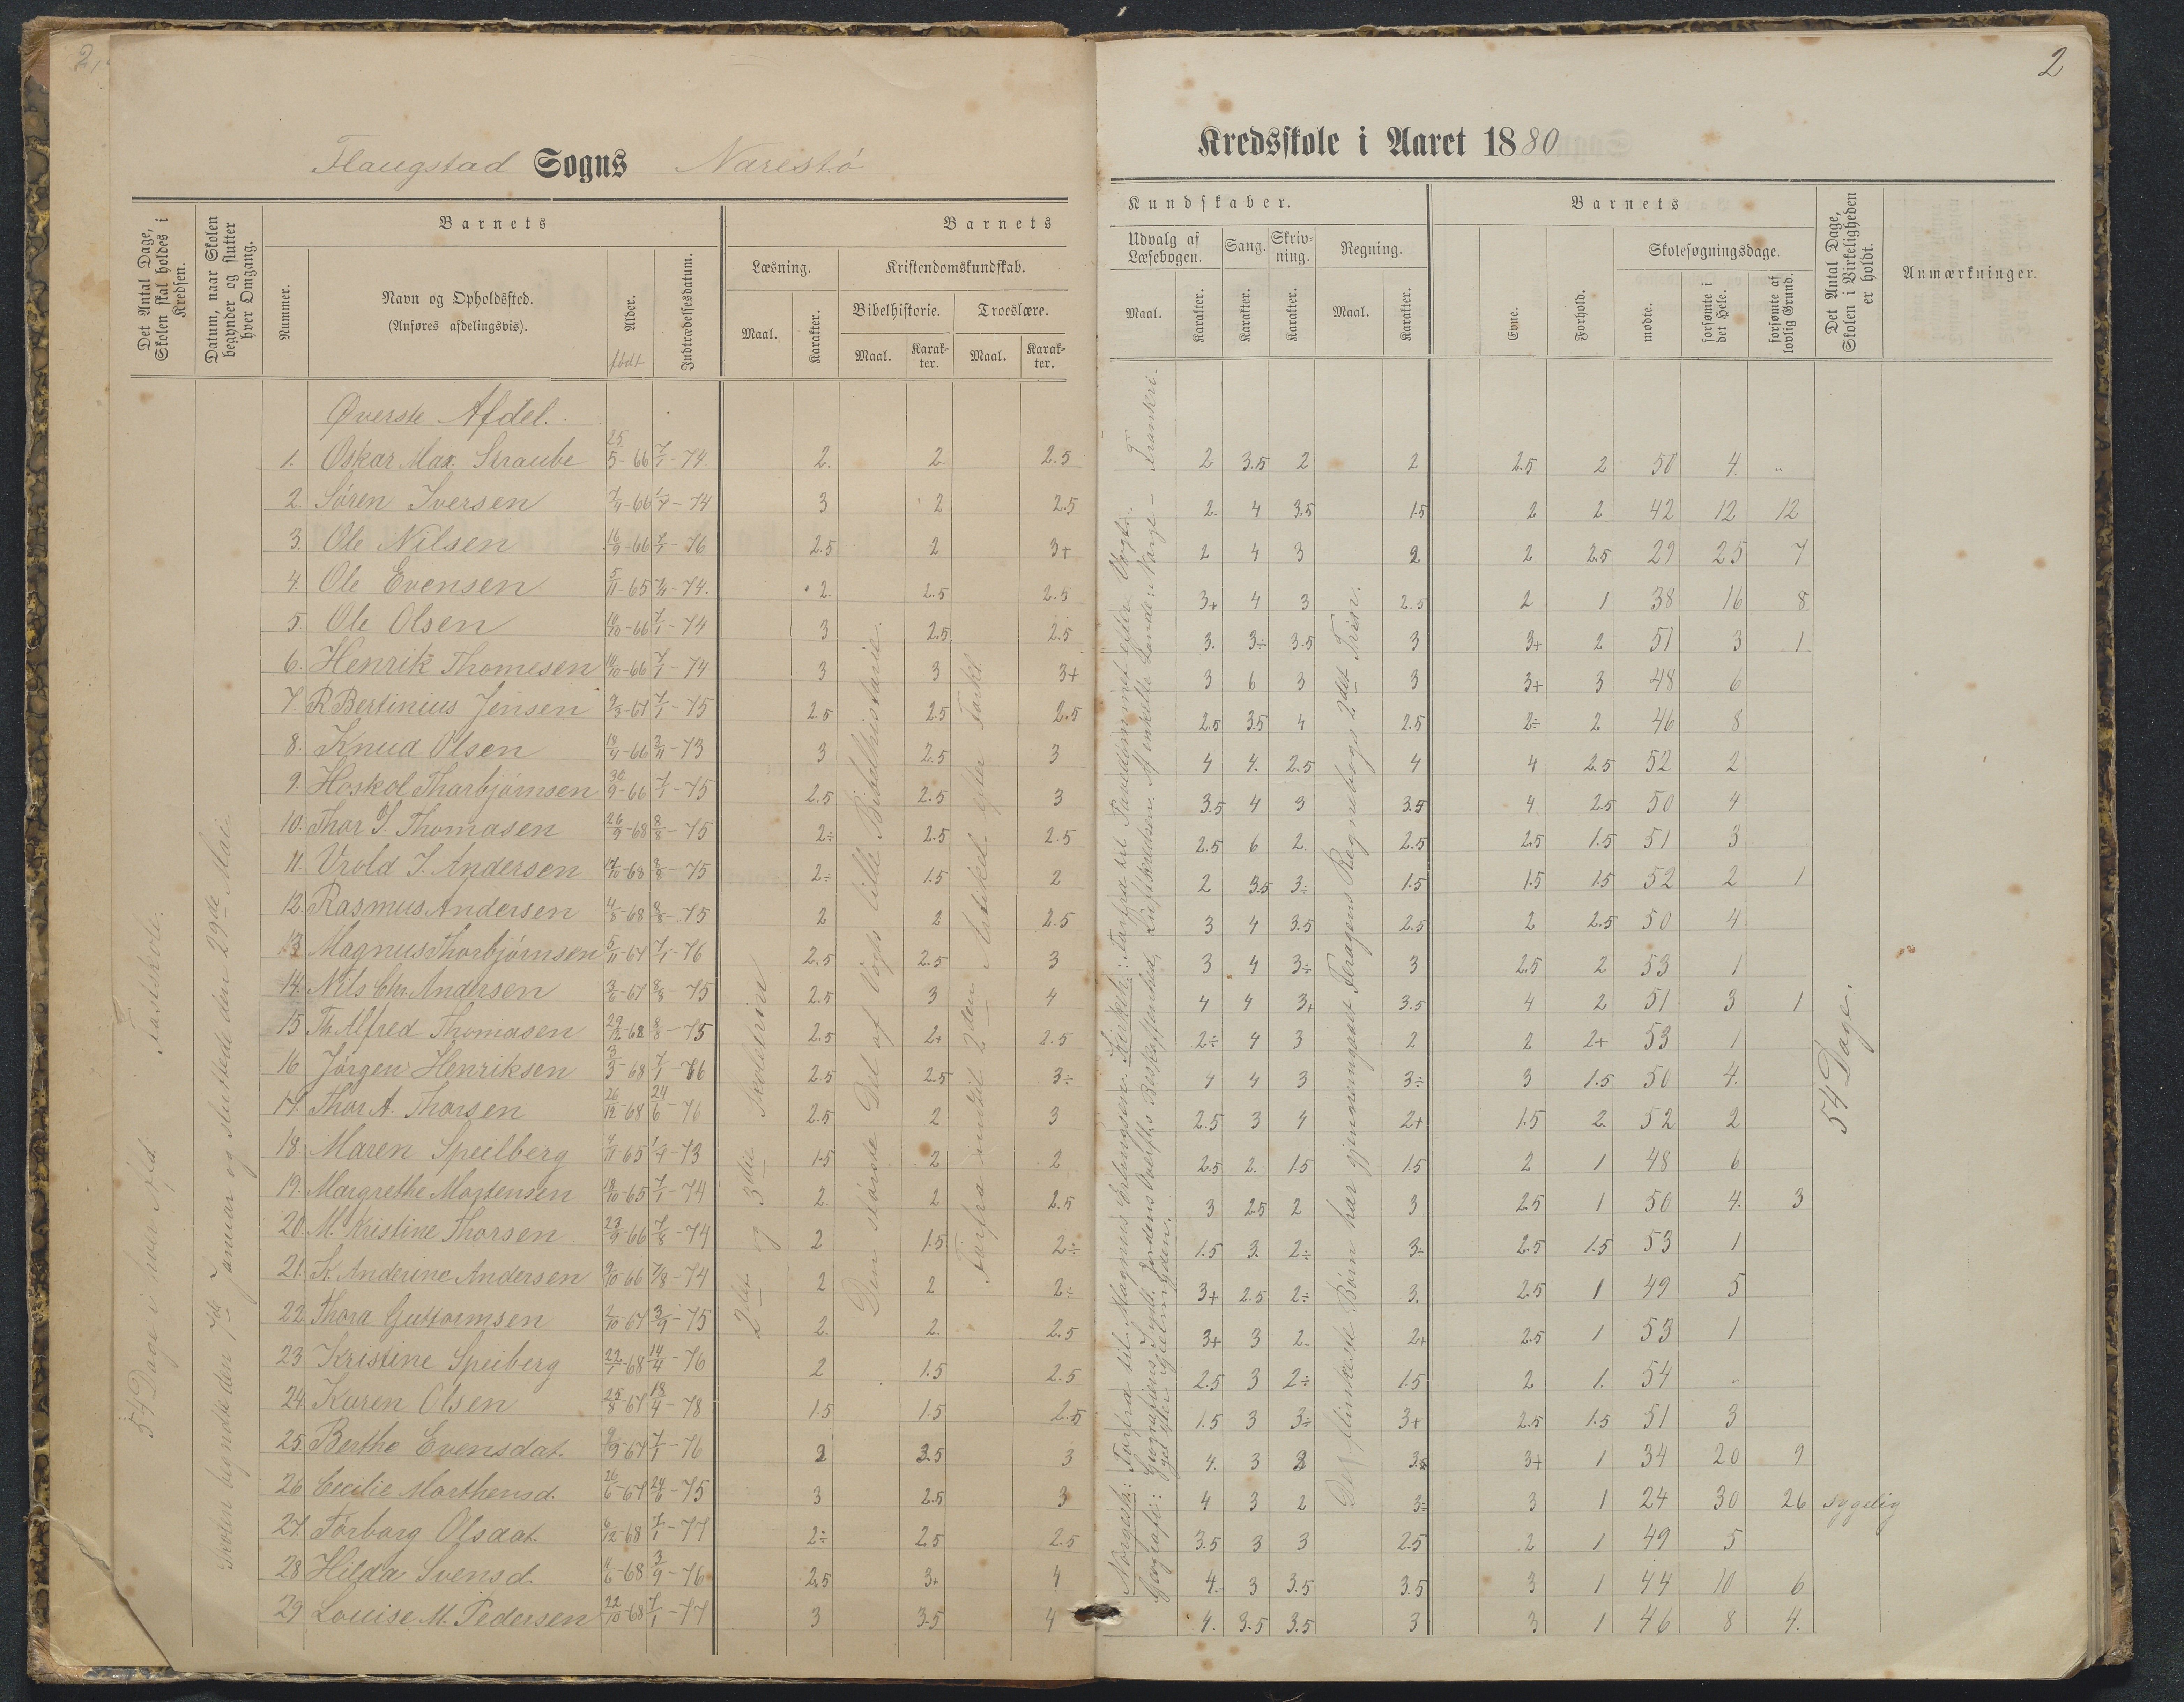 2
Flaugstad Sogns Narestø
Kredsskole i Aaret 1880
Det Antal Dage, Skolen skal holdes i Kredsen.
Datum, naar Skolen begynder og slutter hver Omgang.
Barnets
Nummer.
Navn og Opholdssted.
(Anføres afdelingsvis).
Alder.
født
Indtrædelsesdatum.
Barnets
Læsning.
Maal.
Karakter.
Kristendomskundskab.
Bibelhistorie.
Maal.
Karakter.
Troeslære.
Maal.
Karakter.
Kundskaber.
Udvalg af Læsebogen.
Maal.
Karakter.
Sang.
Karakter.
Skrivning.
Karakter.
Regning.
Maal.
Karakter.
Barnets
Evne.
Forhold.
Skolesøgningsdage.
mødte.
forsømte i det Hele.
forsømte af lovlig Grund.
Det Antal Dage, Skolen i Virkeligheden er holdt.
Anmærkninger.
54 Dage i hver Afd. Fastskole.
Skolen begyndte den 7de Januar og sluttede den 29de Mai.
2det og 3die Skoletrin
Den største Del af Vogts lille Bibelhistorie.
Forfra indtil 2den Artikel efter Forkl.
Det flinkeste Børn har gjennemgaaet Feragens Regnebogs 2det Trin.
54 Dage.
Øverste Afdel.
1. Oskar Max Straube 25/5-66 7/1-74 2. 2. 2.5 2 3.5 2 2 2.5 2 50 4. "
2. Søren Iversen 7/4-66 1/7-74 3 2 2.5 2. 4 3.5 1.5 2 2 42 12 12
3. Ole Nilsen 16/9-66 7/1-76 2.5 2 3+ 2 4 3 2 2 2.5 29 25 7
4. Ole Evensen 5/11-65 7/1-74. 2. 2.5 2.5 3+ 4 3 2.5 2 1 38 16 8
5. Ole Olsen 10/10-66 7/1-74 3 2.5 2.5 3. 3÷ 3.5 3 3+ 2 51 3 1
6. Henrik Thomesen 10/10-66 7/1-74 3 3 3+ 3 6 3 3 3+ 3 48 6
7. R Bertinius Jensen 9/3-67 7/1-75 2.5 2.5 2.5 2.5 3.5 4 2.5 2÷ 2 46 8
8. Knud Olsen 19/4-66 3/11-73 3 2.5 3 4 4. 2.5 4 4 2.5 52 2
9. Hoskol Thorbjørnsen 30/9-66 7/1-75 2.5 2.5 3 3.5 4 3 3.5 4 2.5 50 4
10. Thor S. Thomasen 26/9-68 8/8-75 2÷ 2.5 2.5 2.5 6 2. 2.5 2.5 1.5 51 3
11. Vrold J. Andersen 17/10-68 8/8-75 2÷ 1.5 2 2 3.5 3÷ 1.5 1.5 1.5 52 2 1
12. Rasmus Andersen 4/8-68 8/8-75 2 2 2.5 3 4 3.5 2.5 2 2.5 50 4
13 Magnus Thorbjørnsen 5/11-67 7/1-76 2.5 2.5 3 3 4 3÷ 3 2.5 2 53 1
14. Nils Chr. Andersen 3/6-67 8/8-75 2.5 3 4 4 4 3+ 3.5 4 2 51 3 1
15 Th. Alfred Thomasen 29/12-68 8/8-75 2.5 2+ 2.5 2÷ 4 3 2 2 2+ 53 1
16 Jørgen Henriksen 3/3-68 7/1-76 2.5 2.5 3÷ 4 4 3 3÷ 3 1.5 50 4.
17. Thor A. Thorsen 26/12-68 24/6-76 2.5 2 3 2.5 3 4 2+ 1.5 2. 52 2
18. Maren Speilberg 4/11-65 1/4-73 1.5 2 2 2.5 2. 1.5 1.5 2 1 48 6
19. Margrethe Mortensen 18/10-65 7/1-74 2. 2 2.5 3 2.5 2 3 2.5 1 50 4. 3
20. M. Kristine Thorsen 23/9-66 7/8-74 2 1.5 2÷ 1.5 3. 2÷ 3÷ 2.5 1.5 53 1
21. K. Anderine Andersen 9/10 66 7/8-74 2 2 2÷ 3+ 2.5 2÷ 3. 2.5 1 49 5
22. Thora Guttormsen 2/10-67 3/9-75 2. 2. 2.5 3+ 3 2- 2+ 2.5 1 53 1
23 Kristine Speiberg 22/1-68 14/4-76 2 1.5 2.5 2.5 3 2÷ 1.5 2 1. 54 "
24. Karen Olsen 25/8-67 18/4-78 1.5 1.5 2.5 1.5 3 3÷ 3+ 2.5 1.5 51 3
25. Berthe Evensdat. 9/9-67 7/1-76 2 3.5 3 4. 3 3 3.5 3+ 1 34 20 9
26 Cecilie Morthensd. 26/6-67 24/6-75 3 2.5 3 4 3 2 3÷ 3 1 24 30 26 sygelig
27. Torborg Olsdat. 6/12-68 7/1-77 2÷ 2.5 2.5 3.5 3 3 2.5 2 1 49 5
28 Hilda Svensd. 11/6-68 3/9-76 2.5 3+ 4 4. 3 3.5 3.5 3 1 44 10 6
29 Louise M. Pedersen 22/10-68 7/1-77 3 3.5 4 4. 3.5 3.5 3 3 1 46 8 4.